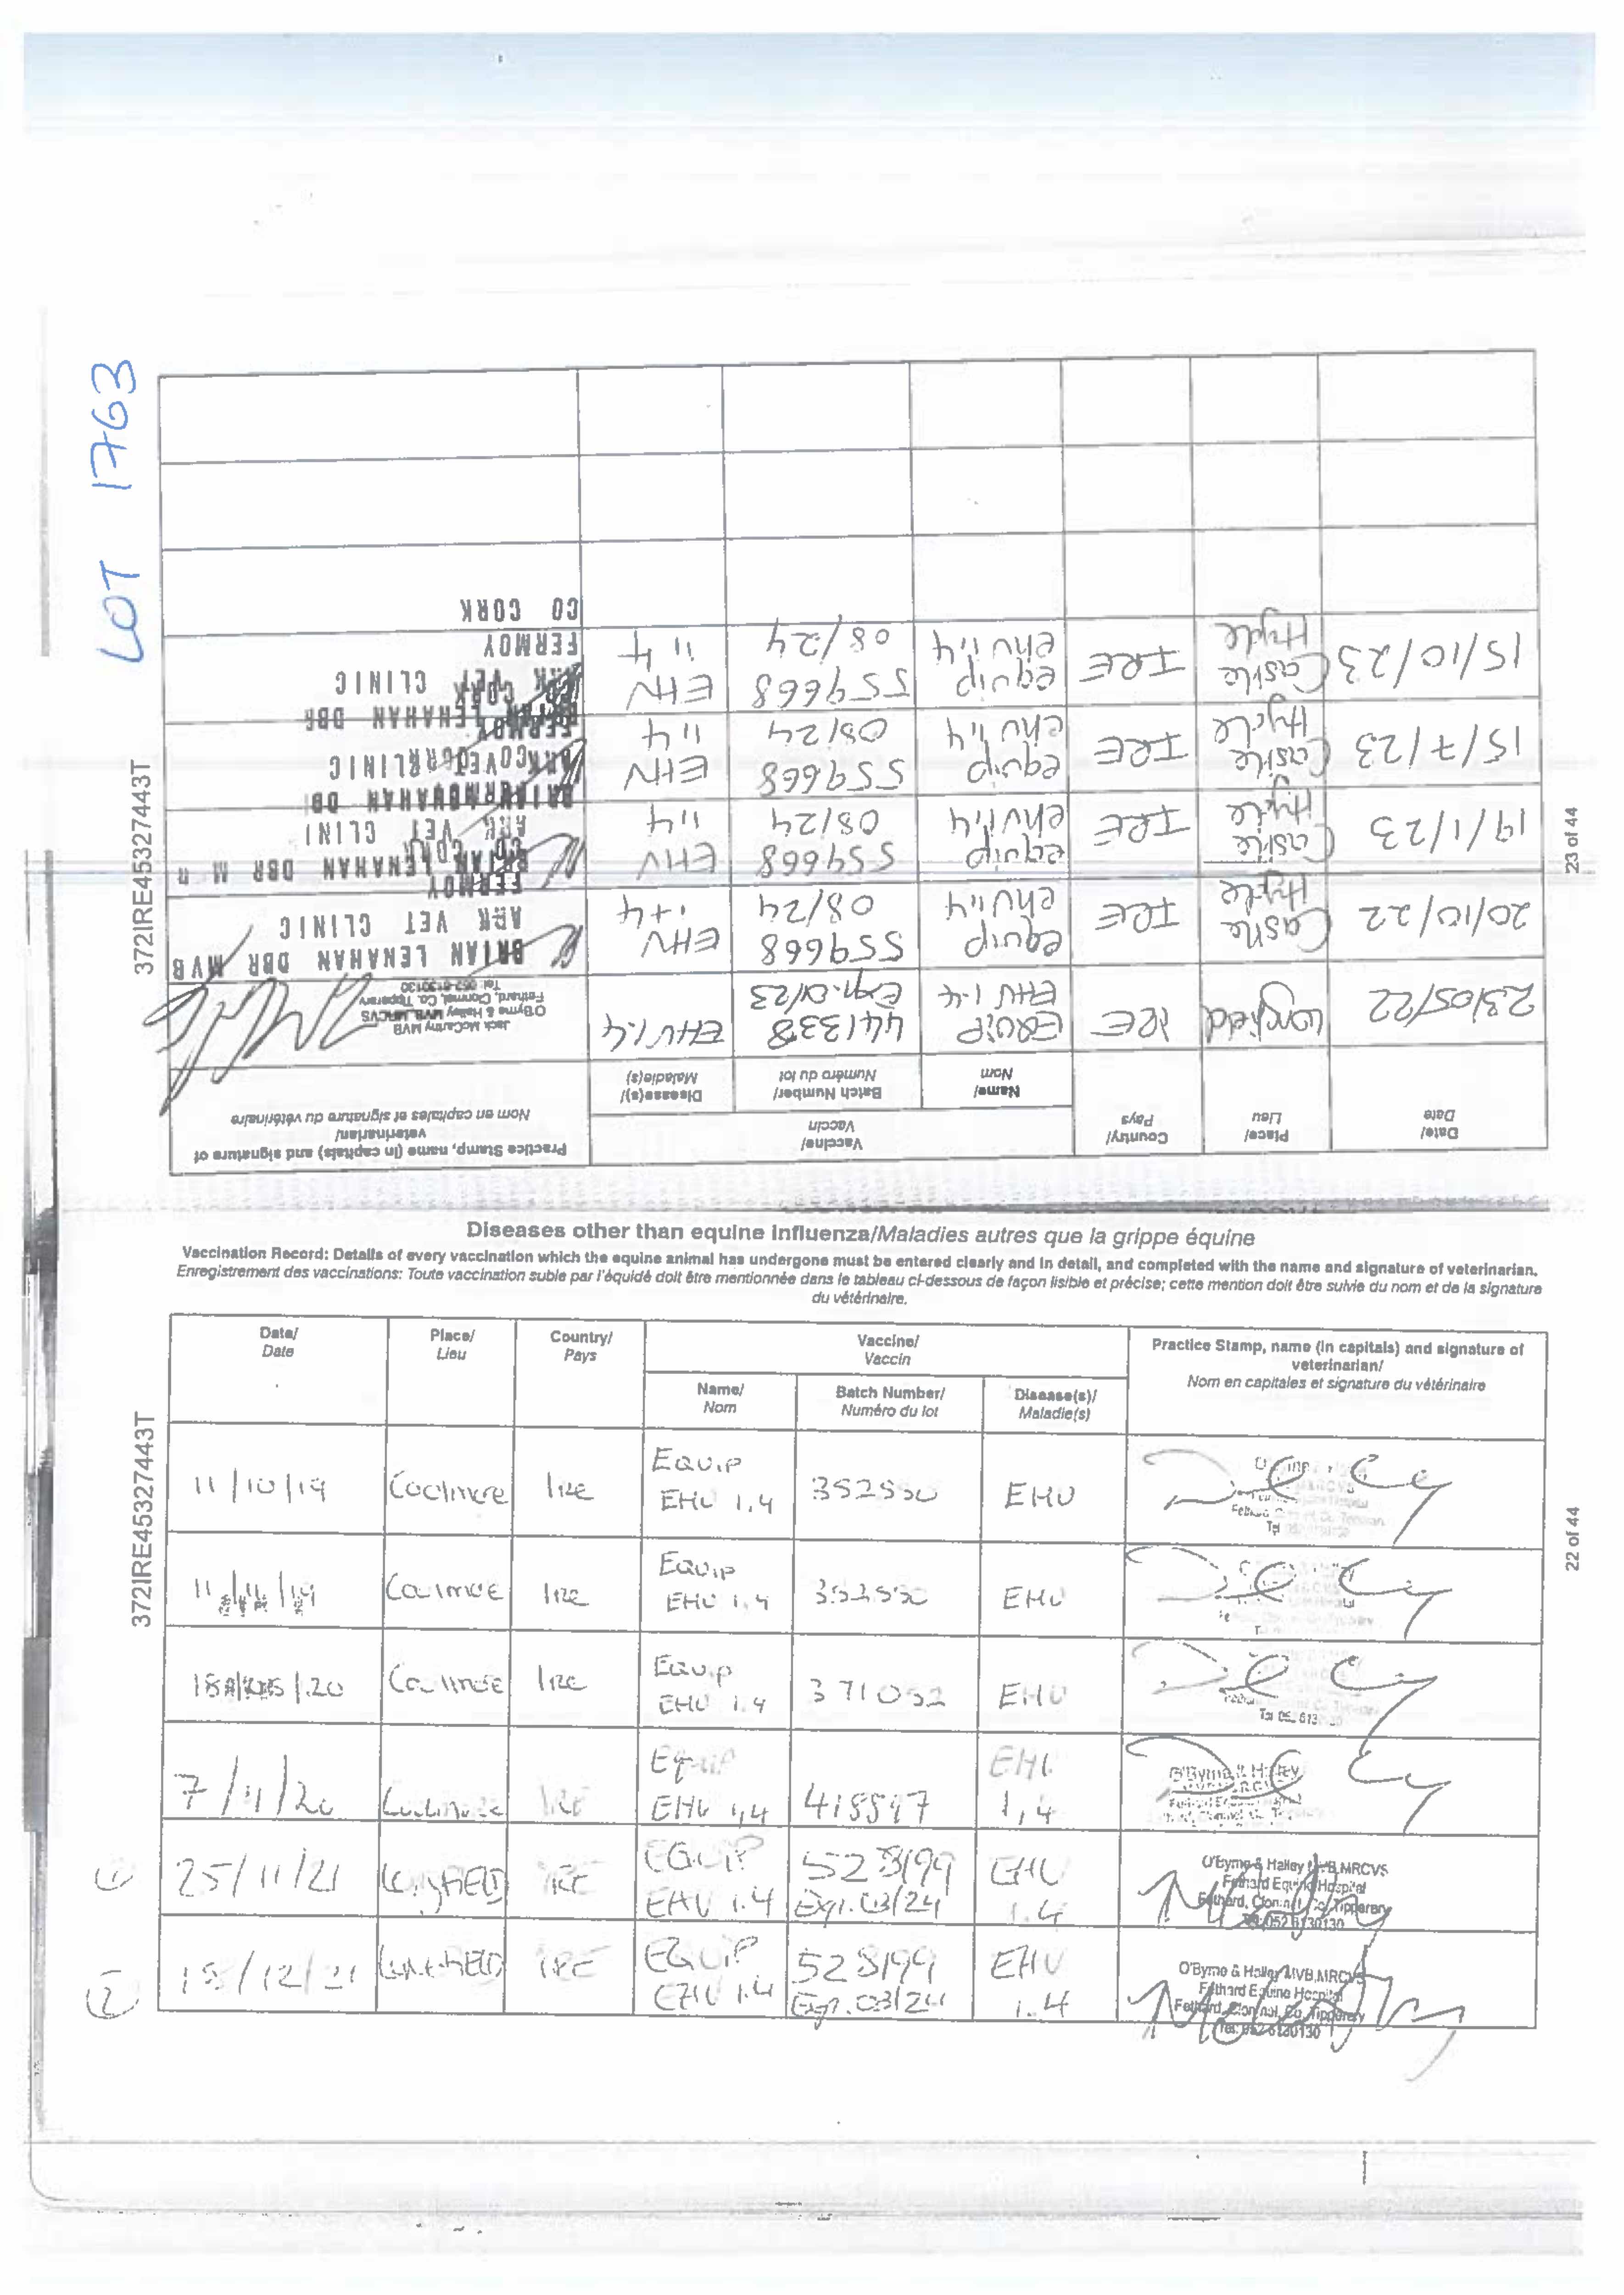 LOT 1763
372IRE453274443T
23 of 44
Date/ Date
Place/ Lieu
Country/ Pays
Vaccine/ Vaccin
Name/ Nom
Batch Number/ Numéro du lot
Disease(s)/ Maladie(s)
Practice Stamp, name (in capitals) and signature of veterinarian/
Nom en capitales et signature du vétérinaire
23/05/22 Longfield IRE EQUIP EHV 1.4 441338 Exp. 01/23 EHV 1.4
Jack McCarthy MVB
O'Byrne & Halley MVB, MRCVS
Fethard, Clonmel, Co. Tipperary
Tel: 052-6130130
20/10/22 Castle Hyde IRE equip ehv 1,4 559668 08/24 EHV 1+4
BRIAN LENAHAN DBR MVB
ARK VET CLINIC
FERMOY
CO CORK
19/1/23 Castle Hyde IRE equip ehv 1,4 559668 08/24 EHV 1,4
BRIAN LENAHAN DBR M
ARK VET CLINI
15/7/23 Castle Hyde IRE equip ehv 1,4 559668 08/24 EHV 1,4
CLINIC
FERMOY
15/10/23 Castle Hyde IRE equip ehv 1,4 559668 08/24 EHV 1,4
BRIAN LENAHAN DBR
ARK VET CLINIC
FERMOY
CO CORK
Diseases other than equine influenza/Maladies autres que la grippe équine
Vaccination Record: Details of every vaccination which the equine animal has undergone must be entered clearly and in detail, and completed with the name and signature of veterinarian.
Enregistrement des vaccinations: Toute vaccination subie par l'équidé doit être mentionnée dans le tableau ci-dessous de façon lisible et précise; cette mention doit être suivie du nom et de la signature
du vétérinaire.
372IRE453274443T
22 of 44
Date/ Date
Place/ Lieu
Country/ Pays
Vaccine/ Vaccin
Name/ Nom
Batch Number/ Numéro du lot
Disease(s)/ Maladie(s)
Practice Stamp, name (in capitals) and signature of veterinarian/
Nom en capitales et signature du vétérinaire
11/10/19 Coolmore Ire Equip EHV 1.4 352550 EHV
Coolmore Ire Equip EHV 1.4 352550 EHV
Coolmore Ire Equip EHV 1.4 371052 EHV
7/11/20 Coolmore IRE Equip EHV 1,4 EHV 1,4
O'Byrne & Halley
1 25/11/21 Longfield IRE EQUIP EHV 1.4 528199 Exp. 03/24 EHV 1.4
O'Byrne & Halley MVB, MRCVS
Fethard Equine Hospital
Fethard, Clonmel, Co. Tipperary
Tel: 052 6130130
2 15/12/21 Longfield IRE EQUIP EHV 1.4 528199 Exp. 03/24 EHV 1.4
O'Byrne & Halley MVB, MRCVS
Fethard Equine Hospital
Fethard, Clonmel, Co. Tipperary
Tel: 052 6130130